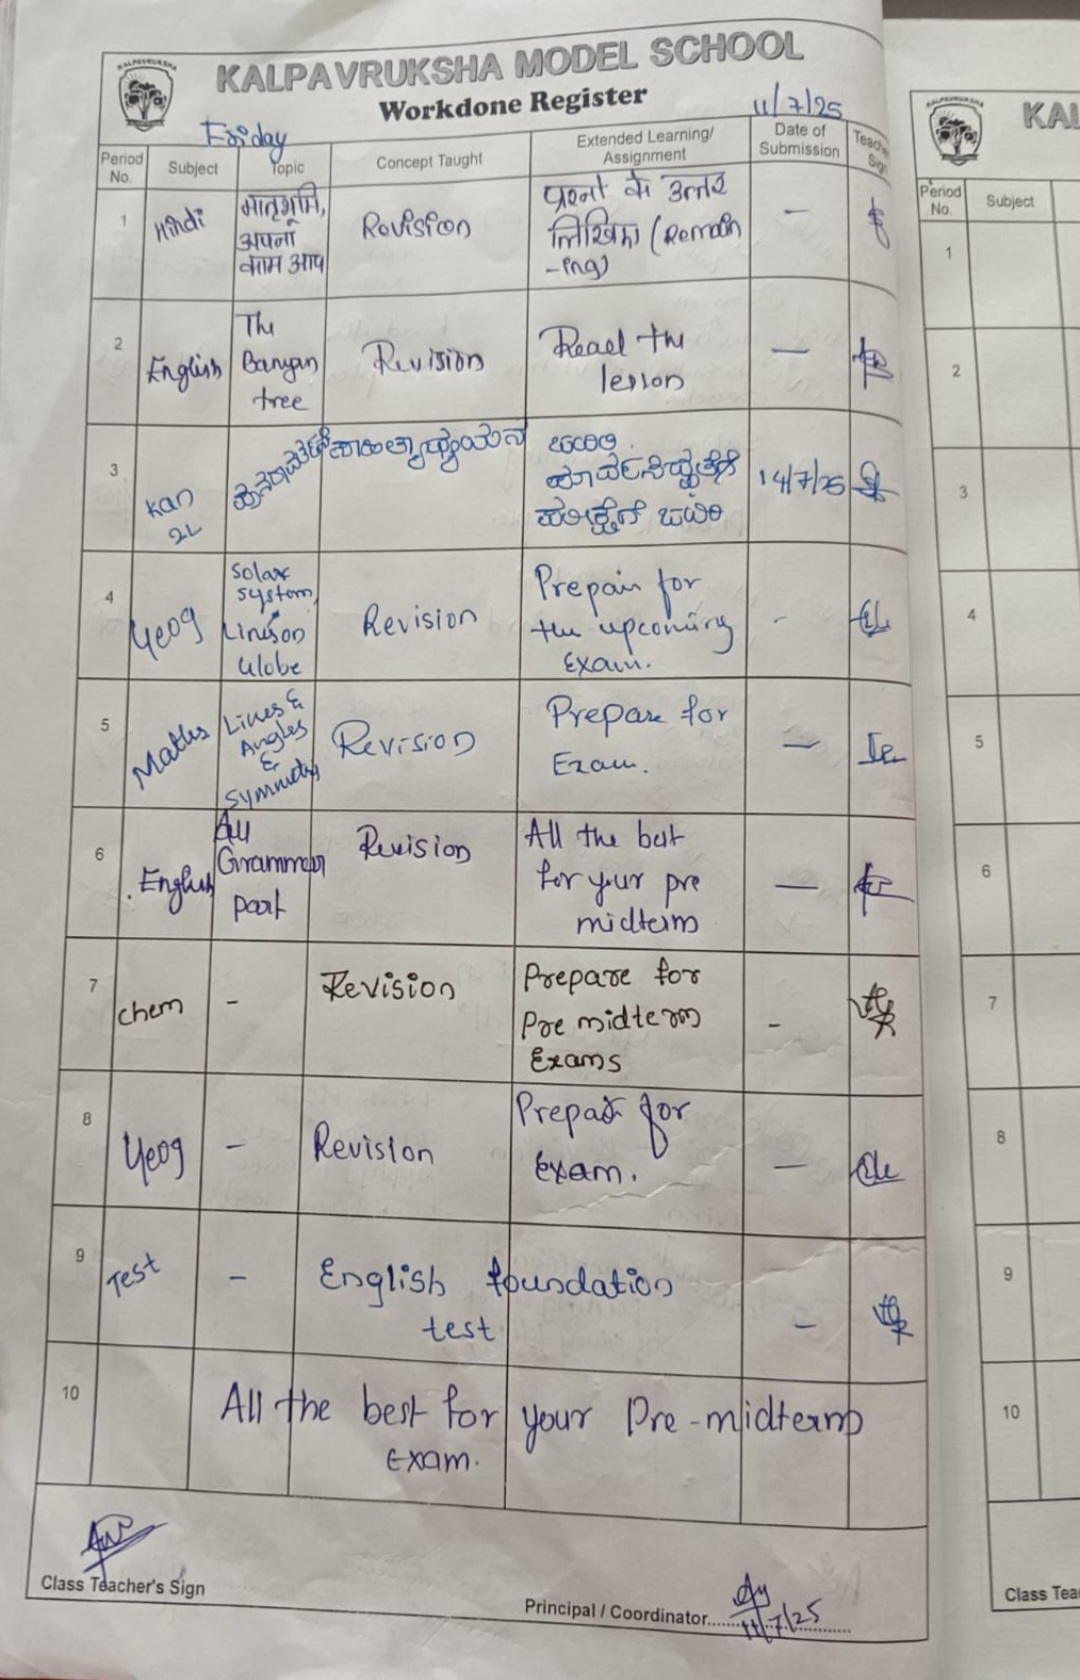 KALPAVRUKSHA
KALPAVRUKSHA MODEL SCHOOL
Workdone Register
Friday
11/7/25
Period No.
Subject
Topic
Concept Taught
Extended Learning/ Assignment
Date of Submission
1
Hindi
मातृभूमि,
अपना
काम आप
Revision
प्रश्नों के उत्तर
लिखिए। (Remain
-ing)
-
2
English
The
Banyan
tree
Revision
Read the
lesson
-
3
Kan
2L
14/7/25
4
Geog
Solar
system,
Lines on
Globe
Revision
Prepair for
the upcoming
Exam.
-
5
Maths
Lines &
Angles
&
Symmetry
Revision
Prepare for
Exam.
-
6
English
All
Grammar
part
Revision
All the best
for your pre
midterm
-
7
chem
-
Revision
Prepare for
Pre midterm
Exams
-
8
Geog
-
Revision
for
Exam.
-
9
Test
-
English foundation
test
-
10
All the best for your Pre-midterm
Exam.
Class Teacher's Sign
Principal / Coordinator
11/7/25
KALPAVRUKSHA
KAL
Period No.
Subject
1
2
3
4
5
6
7
8
9
10
Class Tea